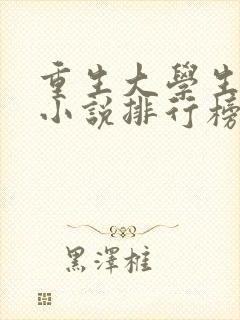 重生大學生
小說排行榜
黑澤樁